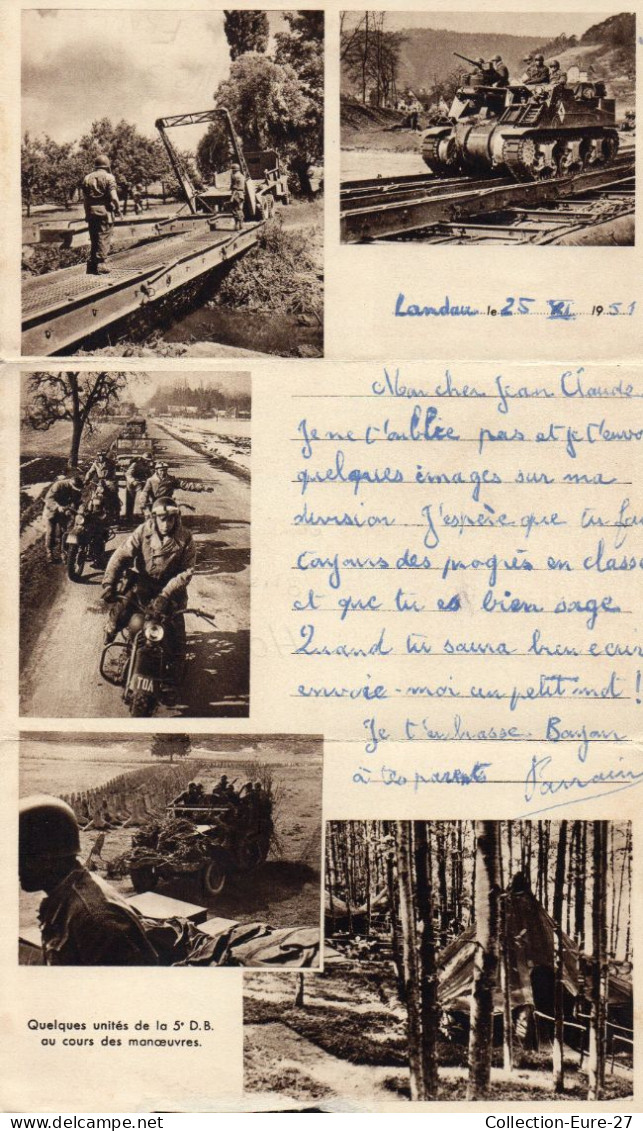 Landau le 25 XI 1951
Mon cher Jean Claude
Je ne t'oublie pas et je t'envo
quelques images sur ma
division. J'espère que tu fai
toujours des progrès en classe
et que tu es bien sage
Quand tu saura bien ecrir
envoie-moi un petit mot!
Je t'embrasse.
à tes parents Parrain
TOA
Quelques unités de la 5e D.B.
au cours des manœuvres.
Collection-Eure-27